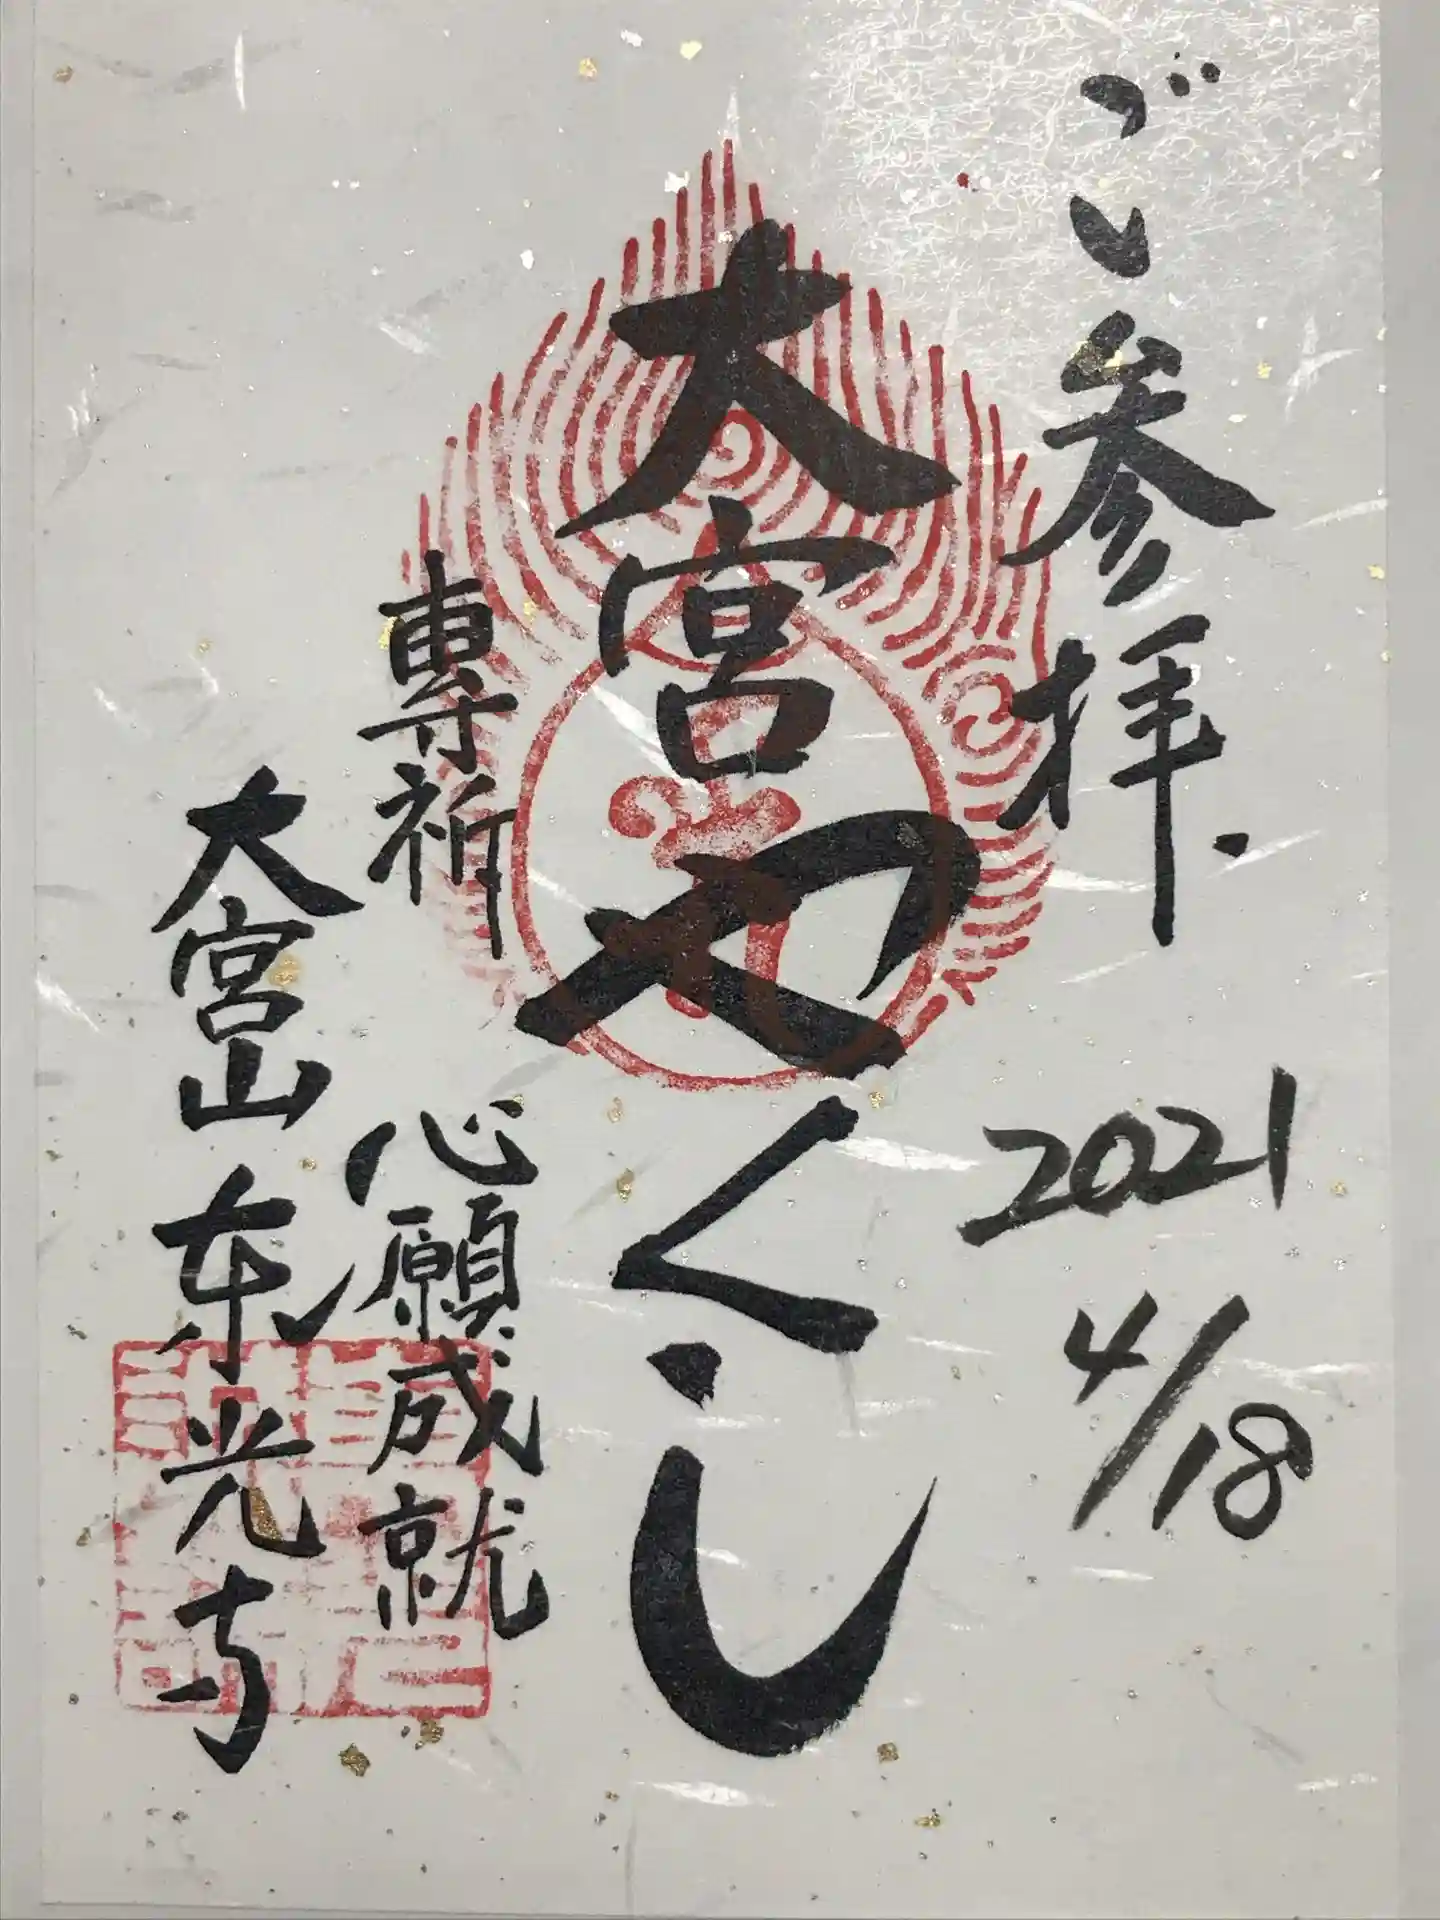 ご参拝.
2021
4/18
大宮やくし
專祈
心願成就
大宮山
東光寺